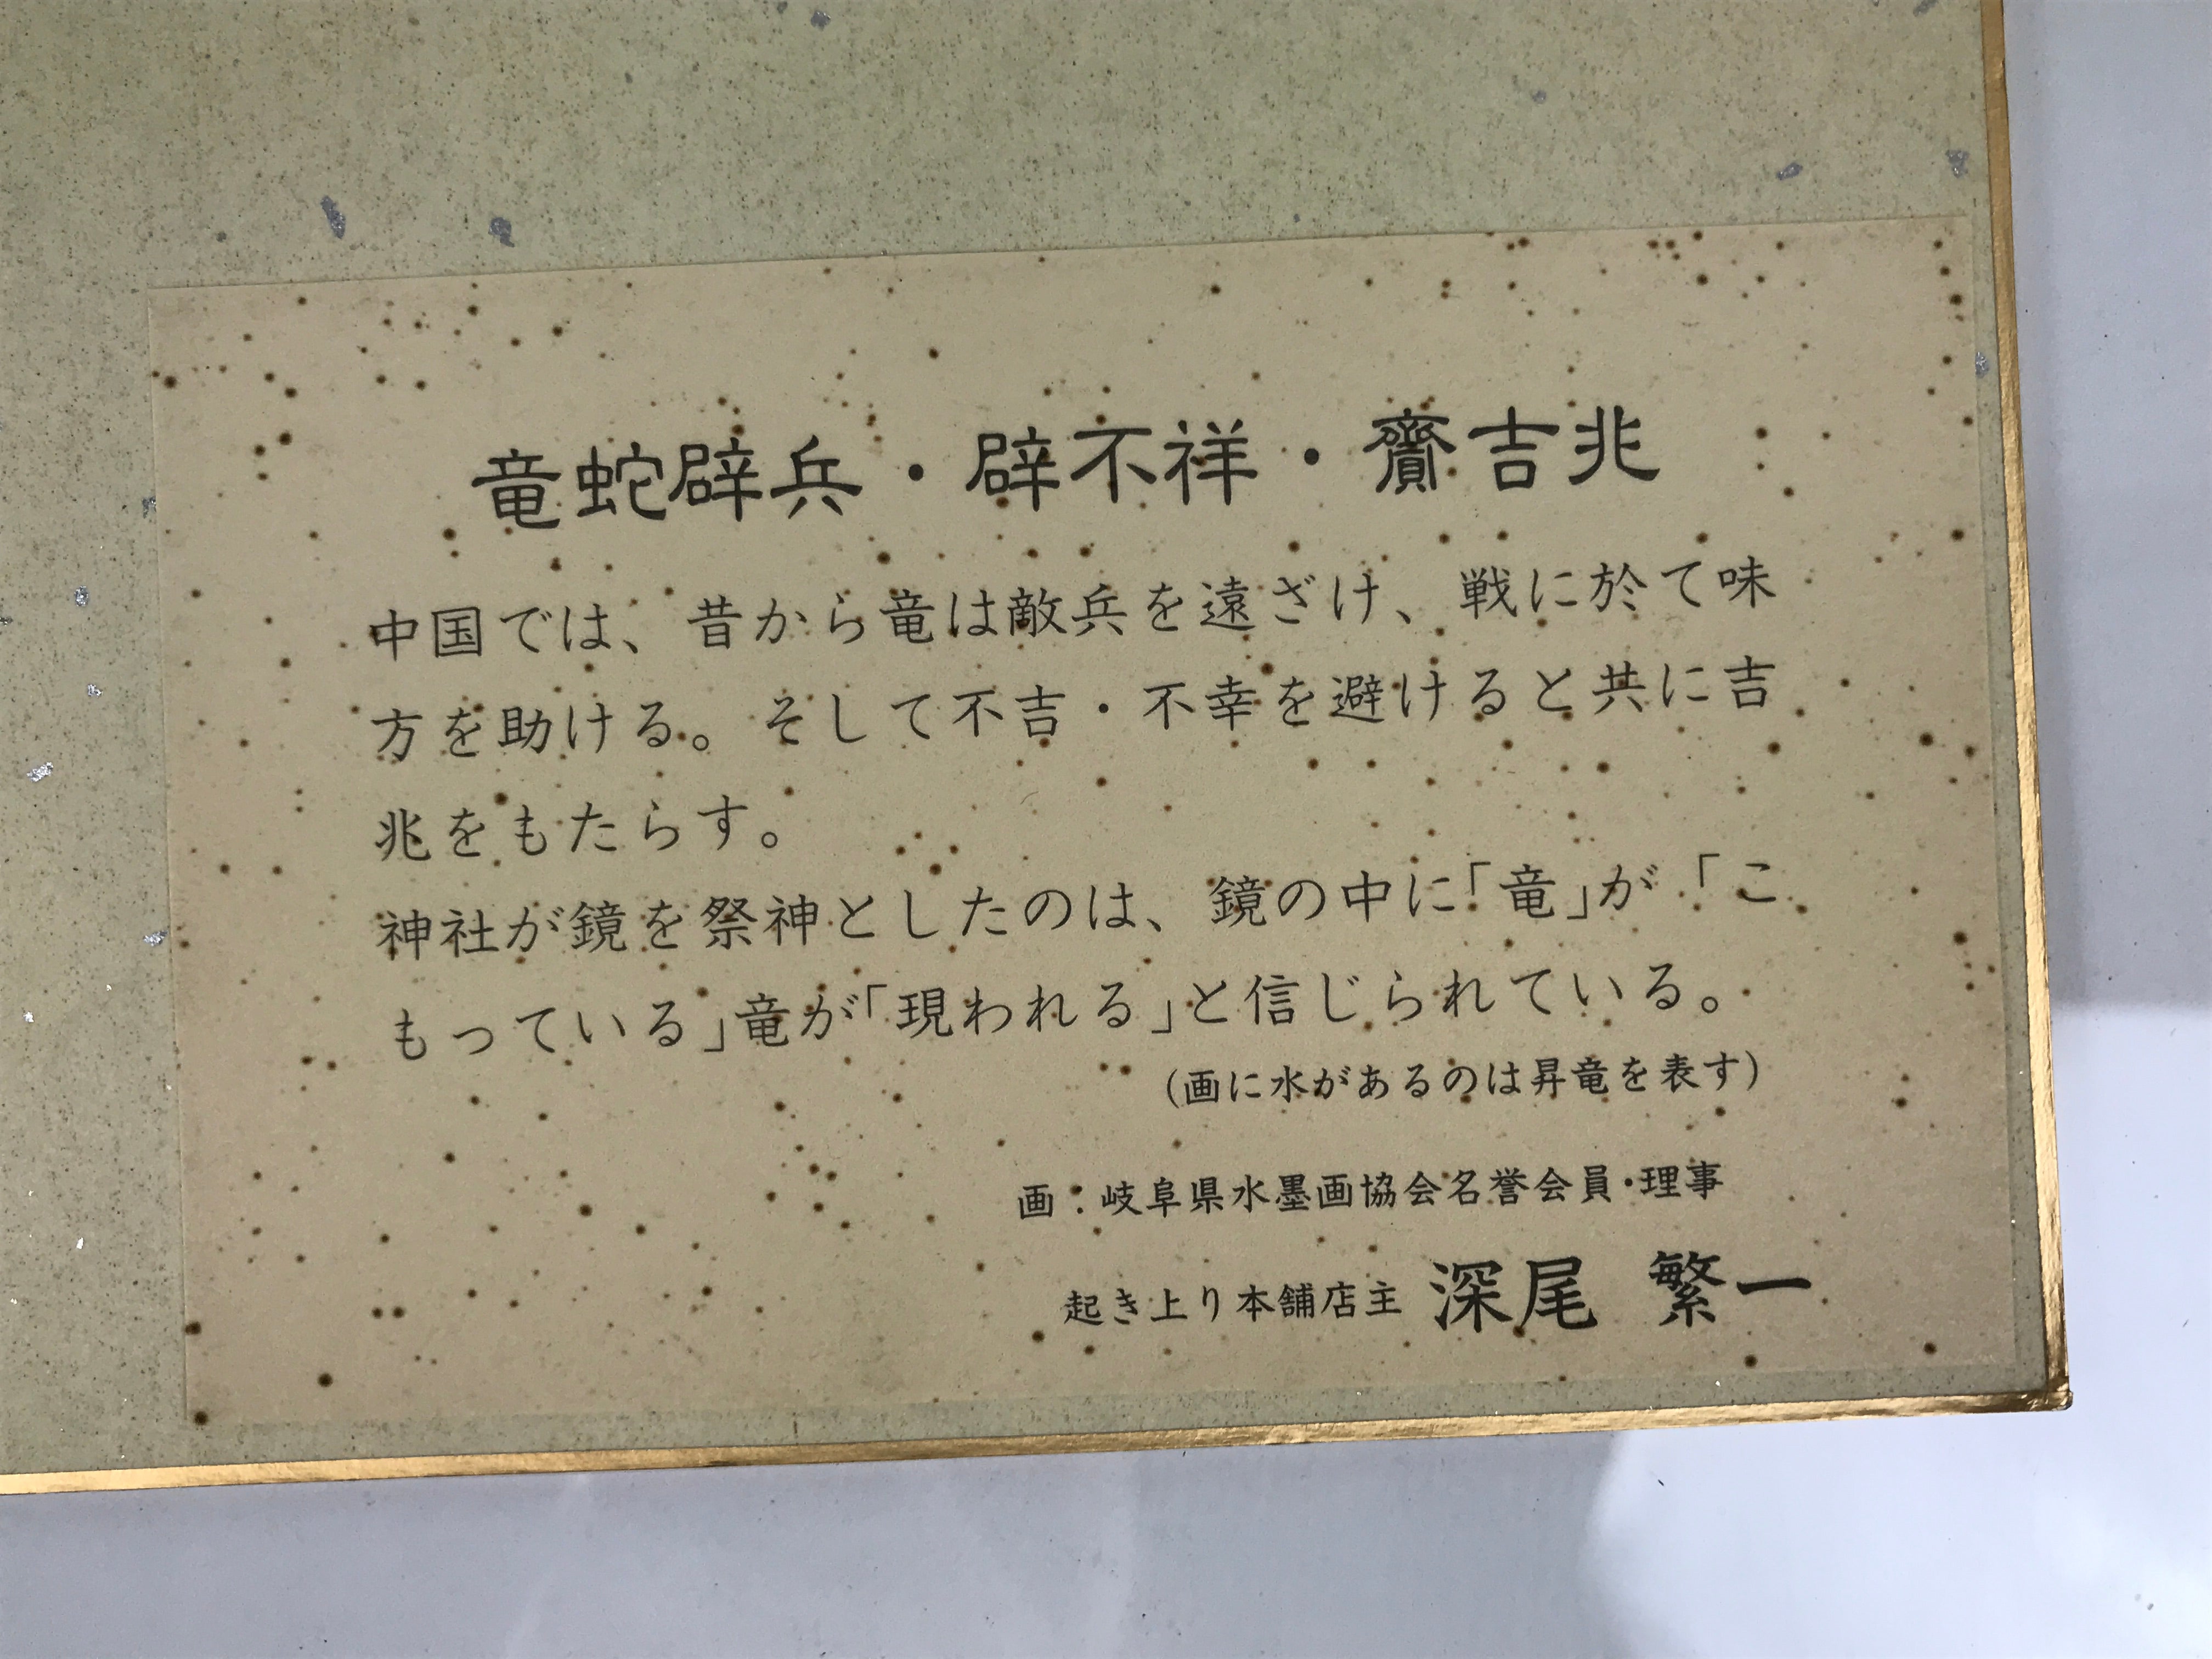 竜蛇辟兵・辟不祥・齎吉兆
中国では、昔から竜は敵兵を遠ざけ、戦に於て味
方を助ける。そして不吉・不幸を避けると共に吉
兆をもたらす。
神社が鏡を祭神としたのは、鏡の中に「竜」が「こ
もっている」竜が「現われる」と信じられている。
(画に水があるのは昇竜を表す)
画：岐阜県水墨画協会名誉会員・理事
起き上り本舗店主 深尾 繁一